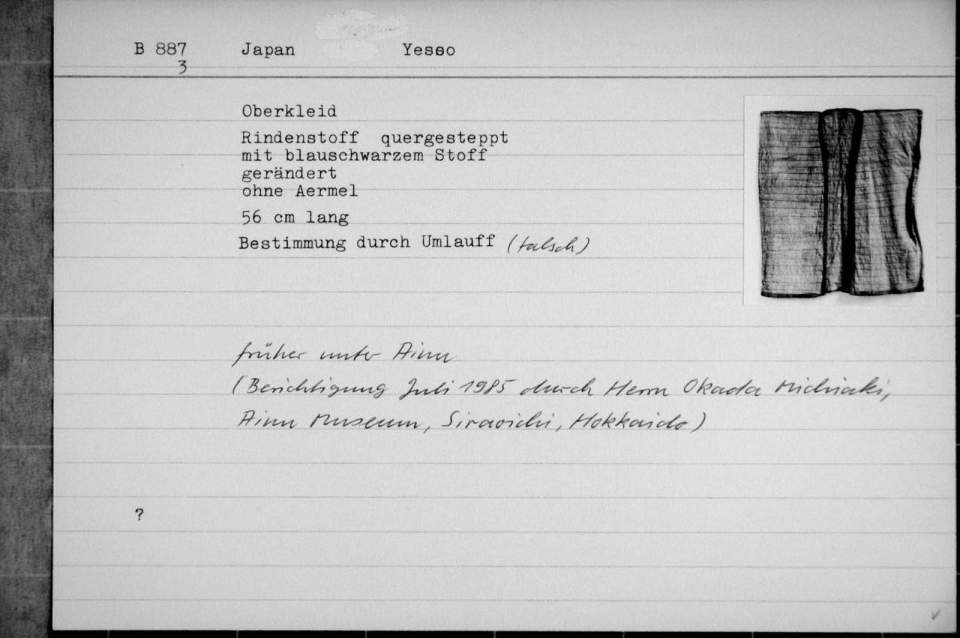 B 887 Japan Yesso
3
Oberkleid
Rindenstoff quergesteppt
mit blauschwarzem Stoff
gerändert
ohne Aermel
56 cm lang
Bestimmung durch Umlauff (falsch)
früher unter Ainu
(Berichtigung Juli 1985 durch Herrn Okada Michiaki,
Ainu Museum, Siraoichi, Hokkaido)
?